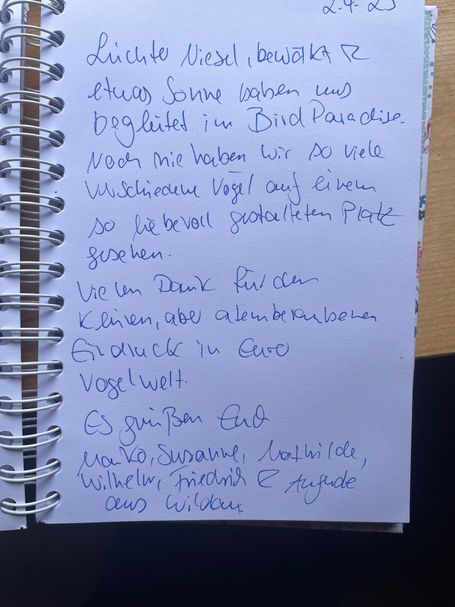 2.4.25
Leichter Niesel, bewölkt &
etwas Sonne haben uns
begleitet im Bird Paradise.
Noch nie haben wir so viele
verschiedene Vögel auf einem
so liebevoll gestalteten Platz
gesehen.
Vielen Dank für den
kleinen, aber atemberaubenen
Eindruck in Eure
Vogelwelt.
Es grüßen Euch
Susanne, Mathilde,
Wilhelm, Friedrich & Auguste
aus Wildau